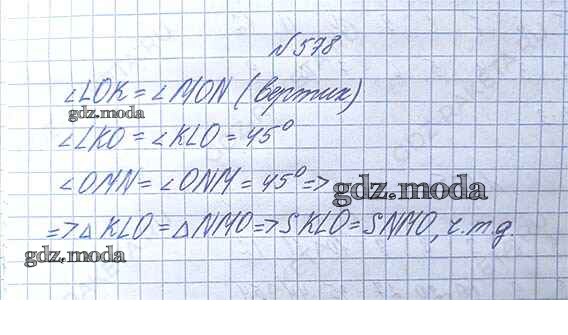 №578
∠LOK = ∠MON (вертик)
gdz.moda
∠LKO = ∠KLO = 45°
∠OMN = ∠ONM = 45° =>
gdz.moda
=> △KLO = △NMO => SKLO = SNMO, ч.т.д.
gdz.moda